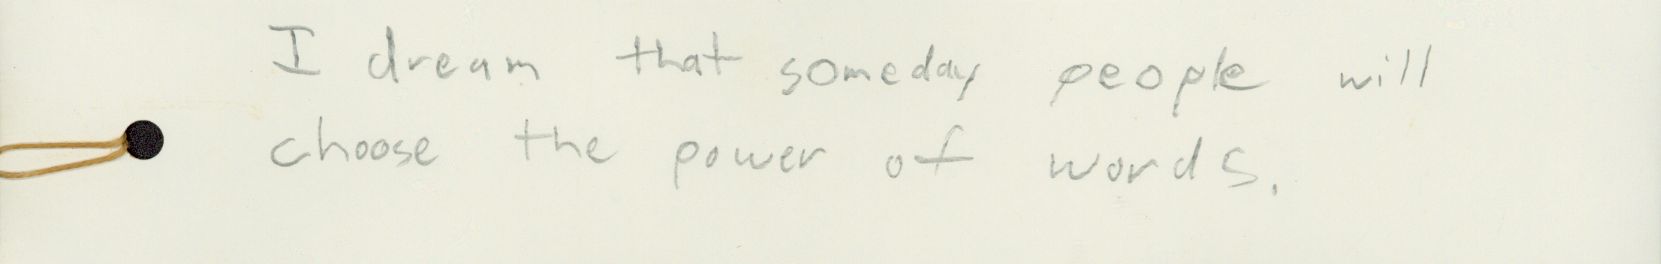 I dream that someday people will
choose the power of words.